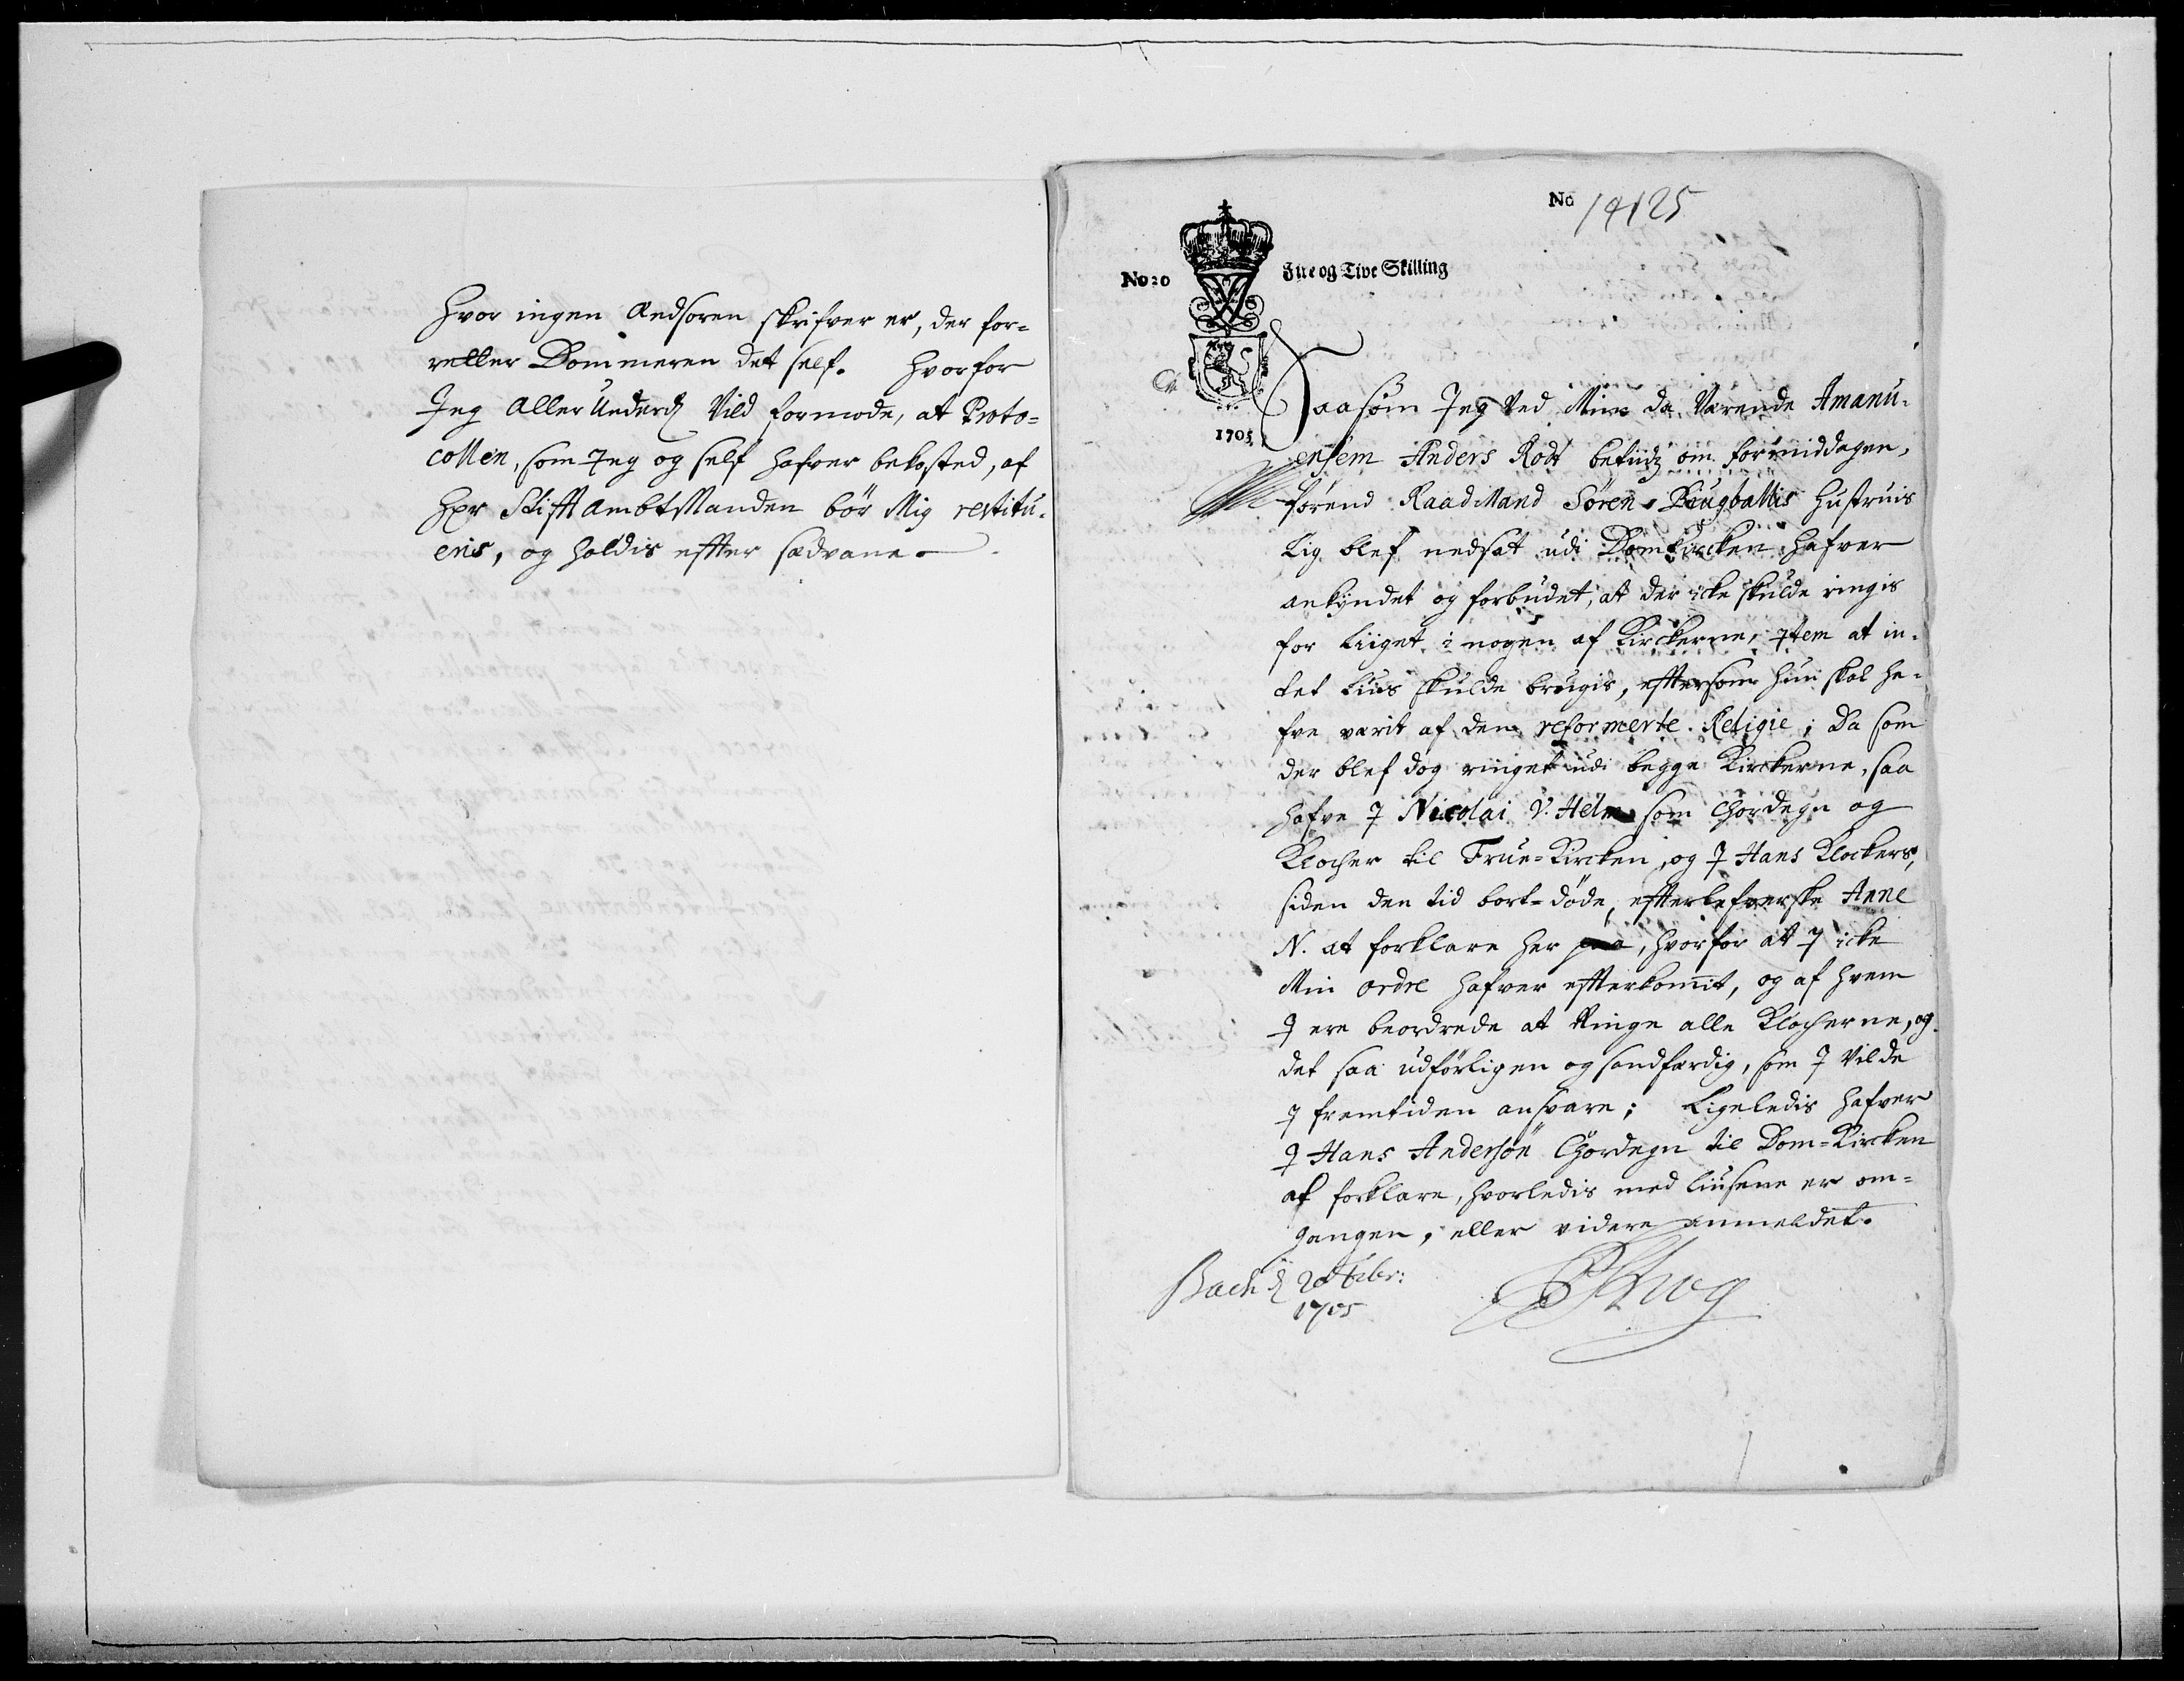 Hvor ingen andsoren skrifver er, der for-
retter Dommeren det self. Hvorfor
Jeg Aller Underd. Vild formode, at Proto-
collen, som Jeg og self hafver bekosted, af
Hr Stifft AmbtManden bør Mig restitu-
eris, og holdis effter sædvane.
No 14125
No 20
Fire og Tive Skilling
1705
Saasom Jeg Ved Min da Værende Amanu-
ensem Anders Rodt betiids om formiddagen,
førend RaadMand Søren Biugballis Hustruis
Lig blef nedsat udi DomKircken hafver
ankyndet og forbudet, at der icke skulde ringis
for Liiget i nogen af Kirckerne, Item at in-
tet Lius skulde brugis, effter som hun skal ha-
fve verit af den reformerte Religie; Da som
der blef dog ringet udi begge Kirckerne, saa
hafve I Nicolai V. Helm som Chordegn og
Klocker til Frue-Kircken, og I Hans Klockers,
siden den tid bort-døde, effterlefverske Anne
N. at forklare her paa, hvorfor at I icke
Min ordre hafver effterkommit, og af hvem
I ere beordrede at Ringe alle Klockerne, og
det saa udførligen og sandfærdig, som I Vilde
I fremtiden ansvare; Ligeledis hafver
I Hans Andersøn Chordegn til Dom-Kircken
at forklare, hvorledis med liusene er om-
gangen, eller videre anmeldet.
Bach d 20 Febr:
1705
Krog